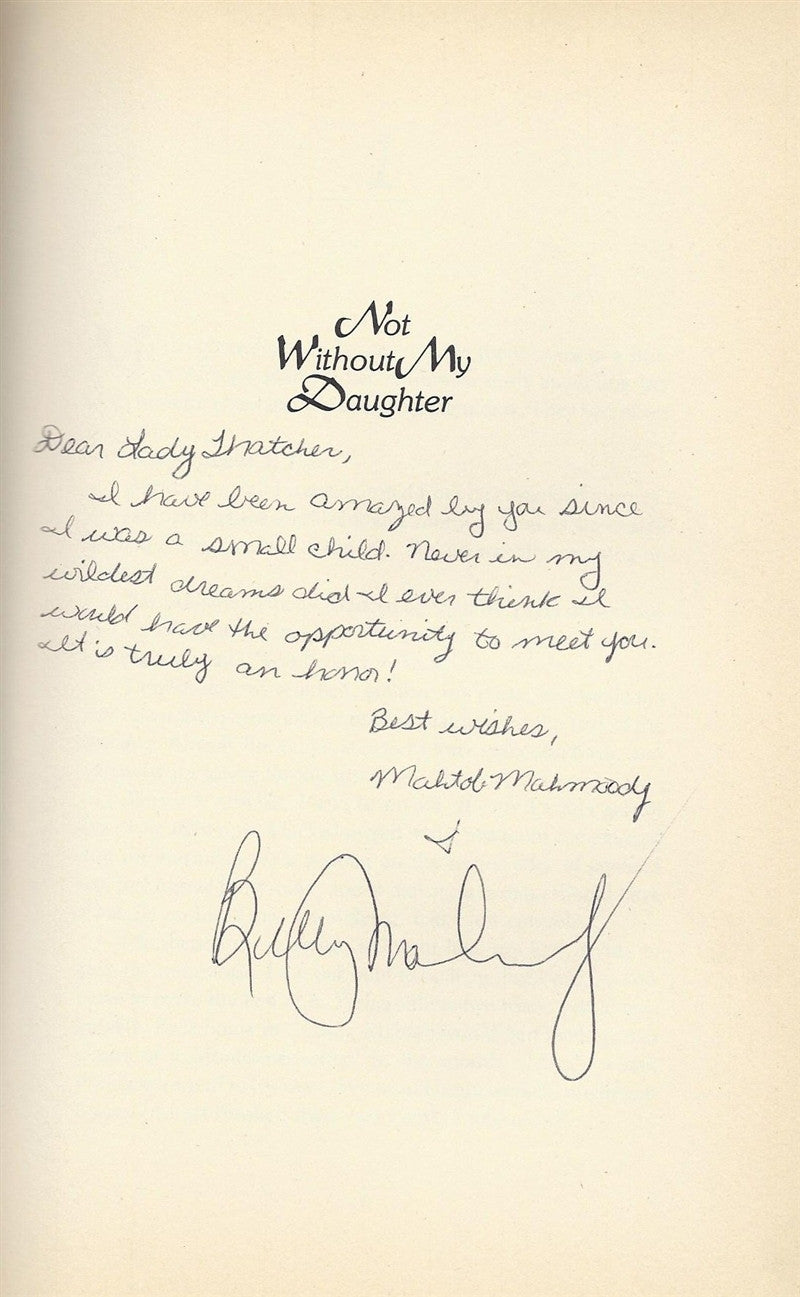 Not
Without My
Daughter
Dear Lady Thatcher,
I have been amazed by you since
I was a small child. Never in my
wildest dreams did I ever think I
would have the opportunity to meet you.
It is truly an honor!
Best wishes,
Mahtob Mahmoody
&
Betty Mahmoody